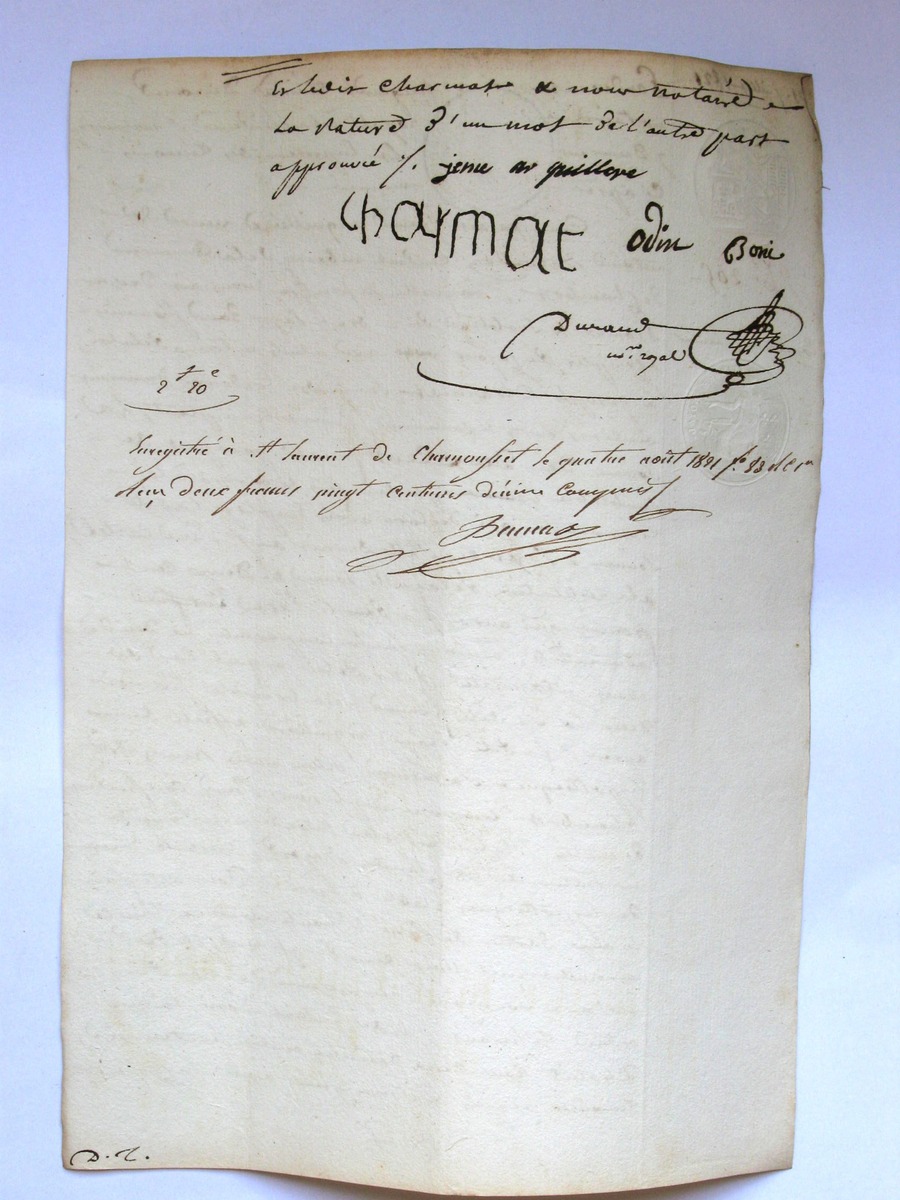 charmat & nous notaire
La rature d'un mot de l'autre part
approuvée /.
Charmat odin Boni
Durand
nre. royal
2f 20c
Enregistré à St laurent de Chamousset le quatre août 1821 fo. 83
deux francs vingt centimes décime Compris
D. R.